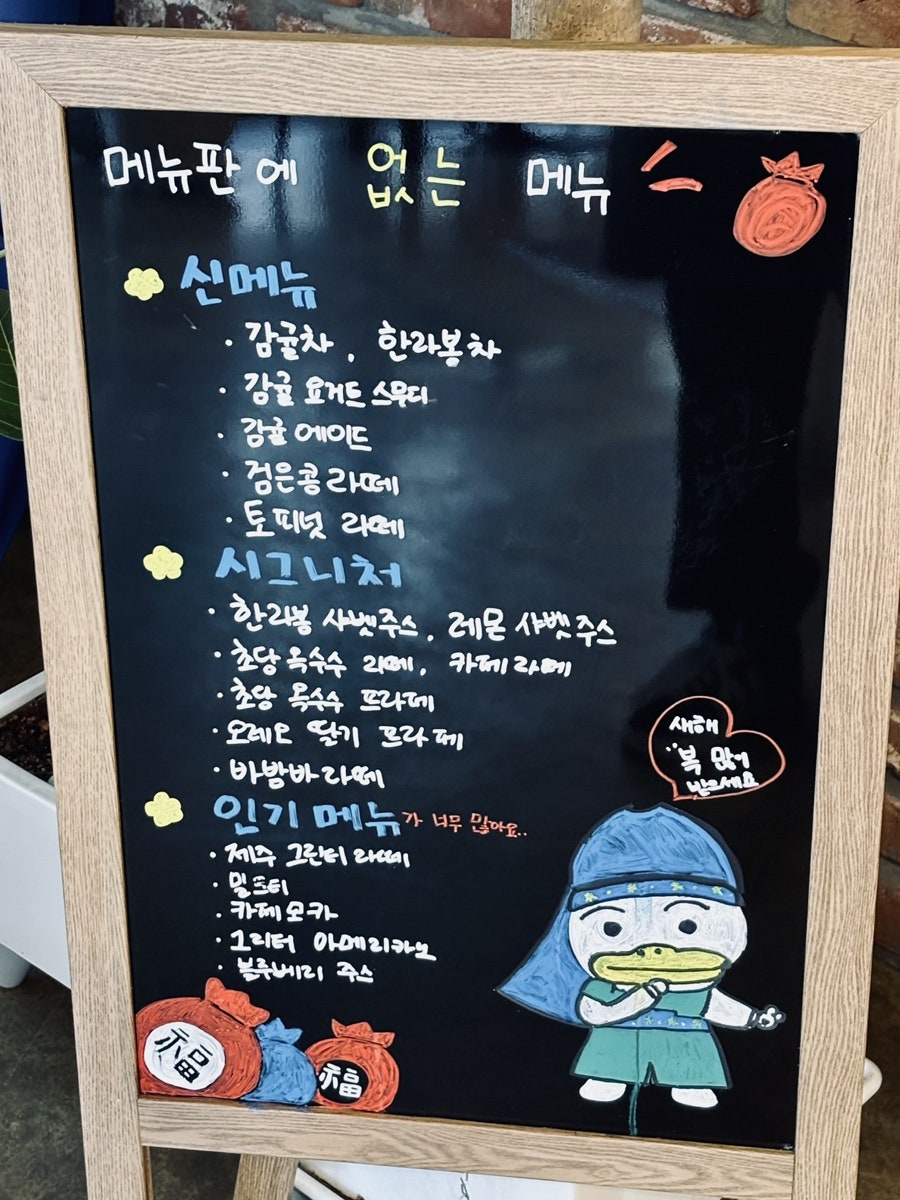 메뉴판에 없는 메뉴
신메뉴
· 감귤차, 한라봉차
· 감귤 요거트 스무디
· 감귤 에이드
· 검은콩 라떼
· 토피넛 라떼
시그니처
· 한라봉 샤벳주스, 레몬 샤벳주스
· 초당 옥수수 라떼, 카페라떼
· 초당 옥수수 프라페
· 오레오 딸기 프라페
· 바밤바 라떼
인기 메뉴가 너무 많아요..
· 제주 그린티 라떼
· 밀크티
· 카페모카
· 그리터 아메리카노
· 블루베리 주스
새해
복 많이
받으세요
福
福